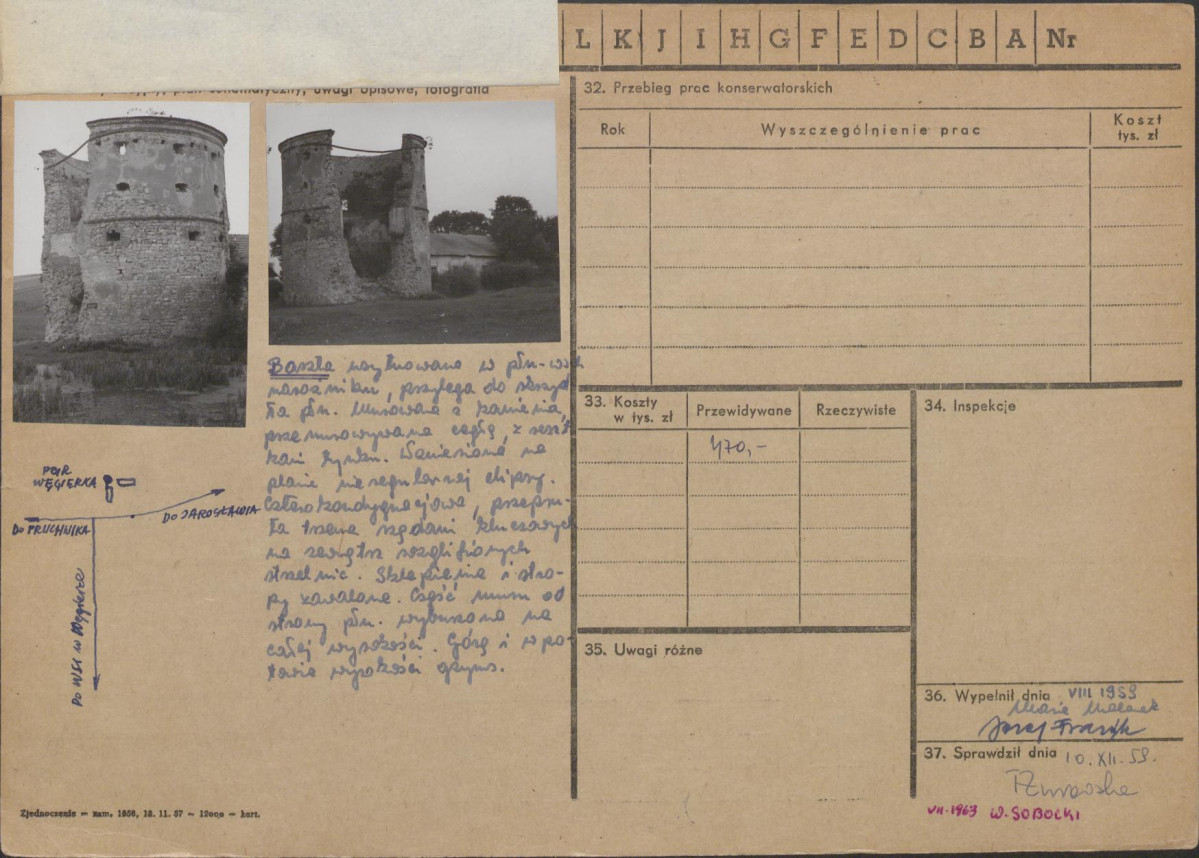 L K J I H G F E D C B A Nr
plan schematyczny, uwagi opisowe, fotografia
Baszta usytuowana w płn-wsch
narożniku, przylega do skrzyd-
ła płn. Murowana z kamienia,
przemurowywana cegłą, z reszt-
kami tynku. Wzniesiona na
planie nieregularnej elipsy.
Czterokondygnacjowa, przepru-
ta trzema rzędami kluczowych
na zewnątrz rozglifionych
strzelnic. Sklepienia i stro-
py zawalone. Część muru od
strony płn. wyburzona na
całej wysokości. Górą i w po-
łowie wysokości gzyms.
PGR
WĘGIERKA
DO JAROSŁAWIA
DO PRUCHNIKA
DO WSI W Węgierce
Zjednoczenie — zam. 1656, 18. 11. 57 — 12000 — kart.
32. Przebieg prac konserwatorskich
Rok Wyszczególnienie prac Koszt
tys. zł
33. Koszty
w tys. zł Przewidywane Rzeczywiste
470,-
34. Inspekcje
35. Uwagi różne
36. Wypełnił dnia VIII 1959
Maria
Józef Frazik
37. Sprawdził dnia 10. XII. 59.
VII-1963 W. SOBOCKI